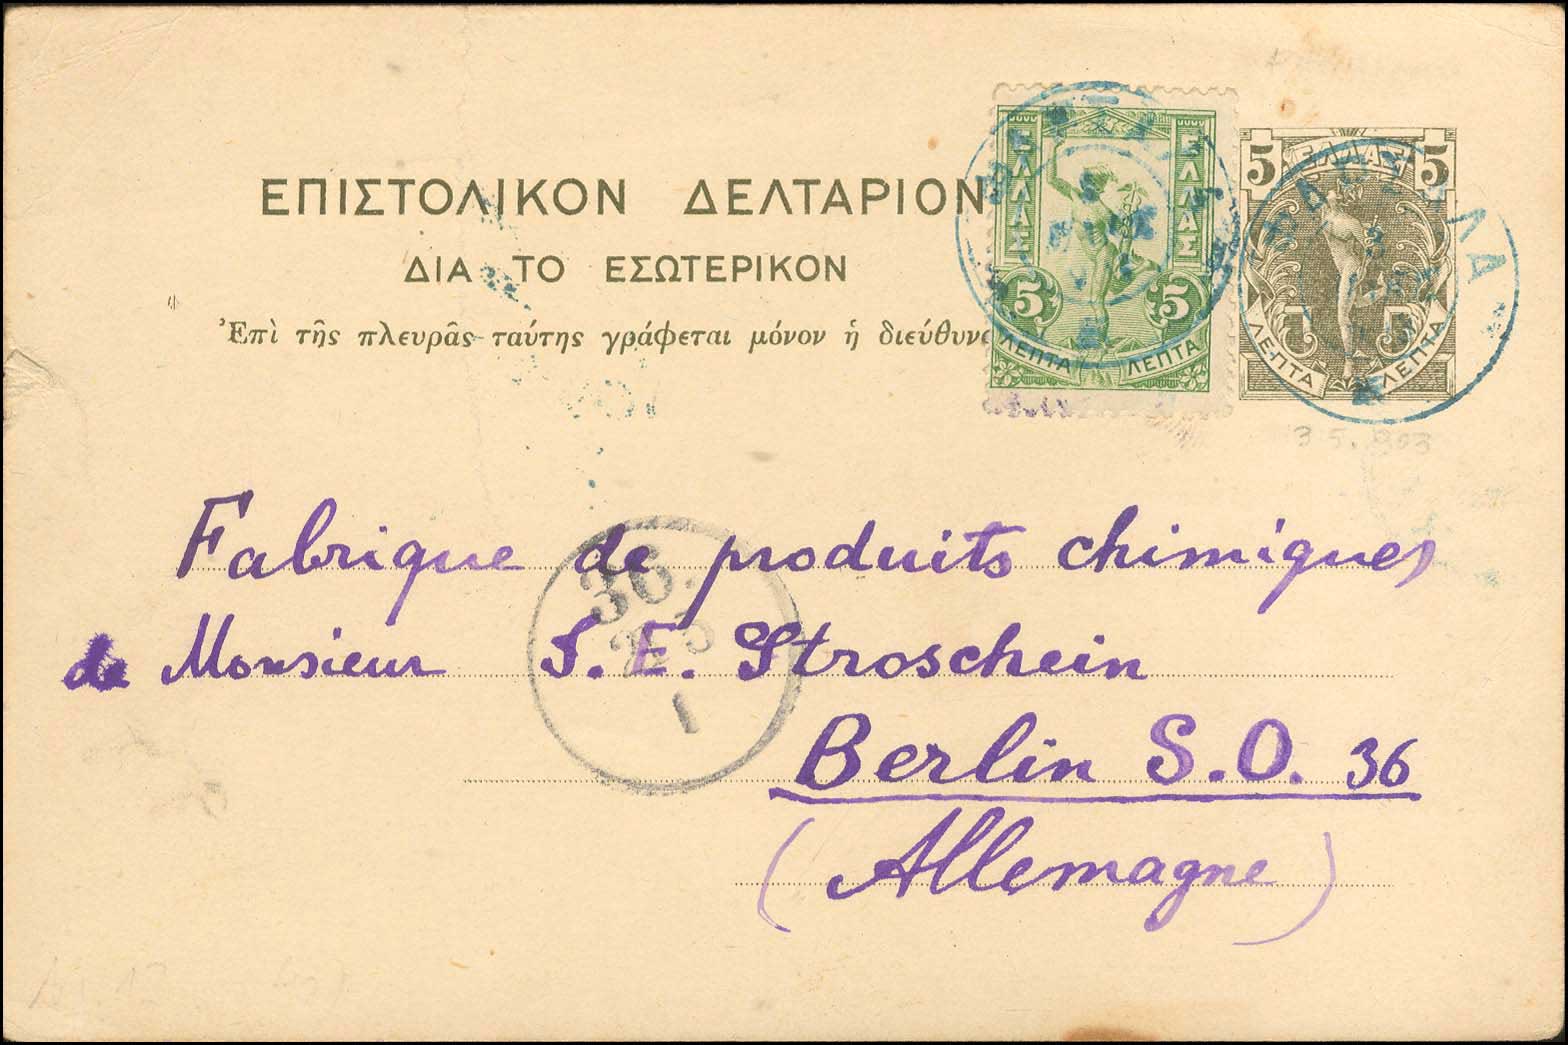 ΕΠΙΣΤΟΛΙΚΟΝ ΔΕΛΤΑΡΙΟΝ
ΔΙΑ ΤΟ ΕΣΩΤΕΡΙΚΟΝ
Ἐπὶ τῆς πλευρᾶς ταύτης γράφεται μόνον ἡ
ΕΛΛΑΣ ΕΛΛΑΣ
5 5
ΛΕΠΤΑ ΛΕΠΤΑ
5 ΕΛΛΑΣ 5
ΛΕΠΤΑ ΛΕΠΤΑ
3 5. 903
Fabrique de produits chimiques
de Monsieur S. E. Stroschein
Berlin S.O. 36
(Allemagne)
36.
1